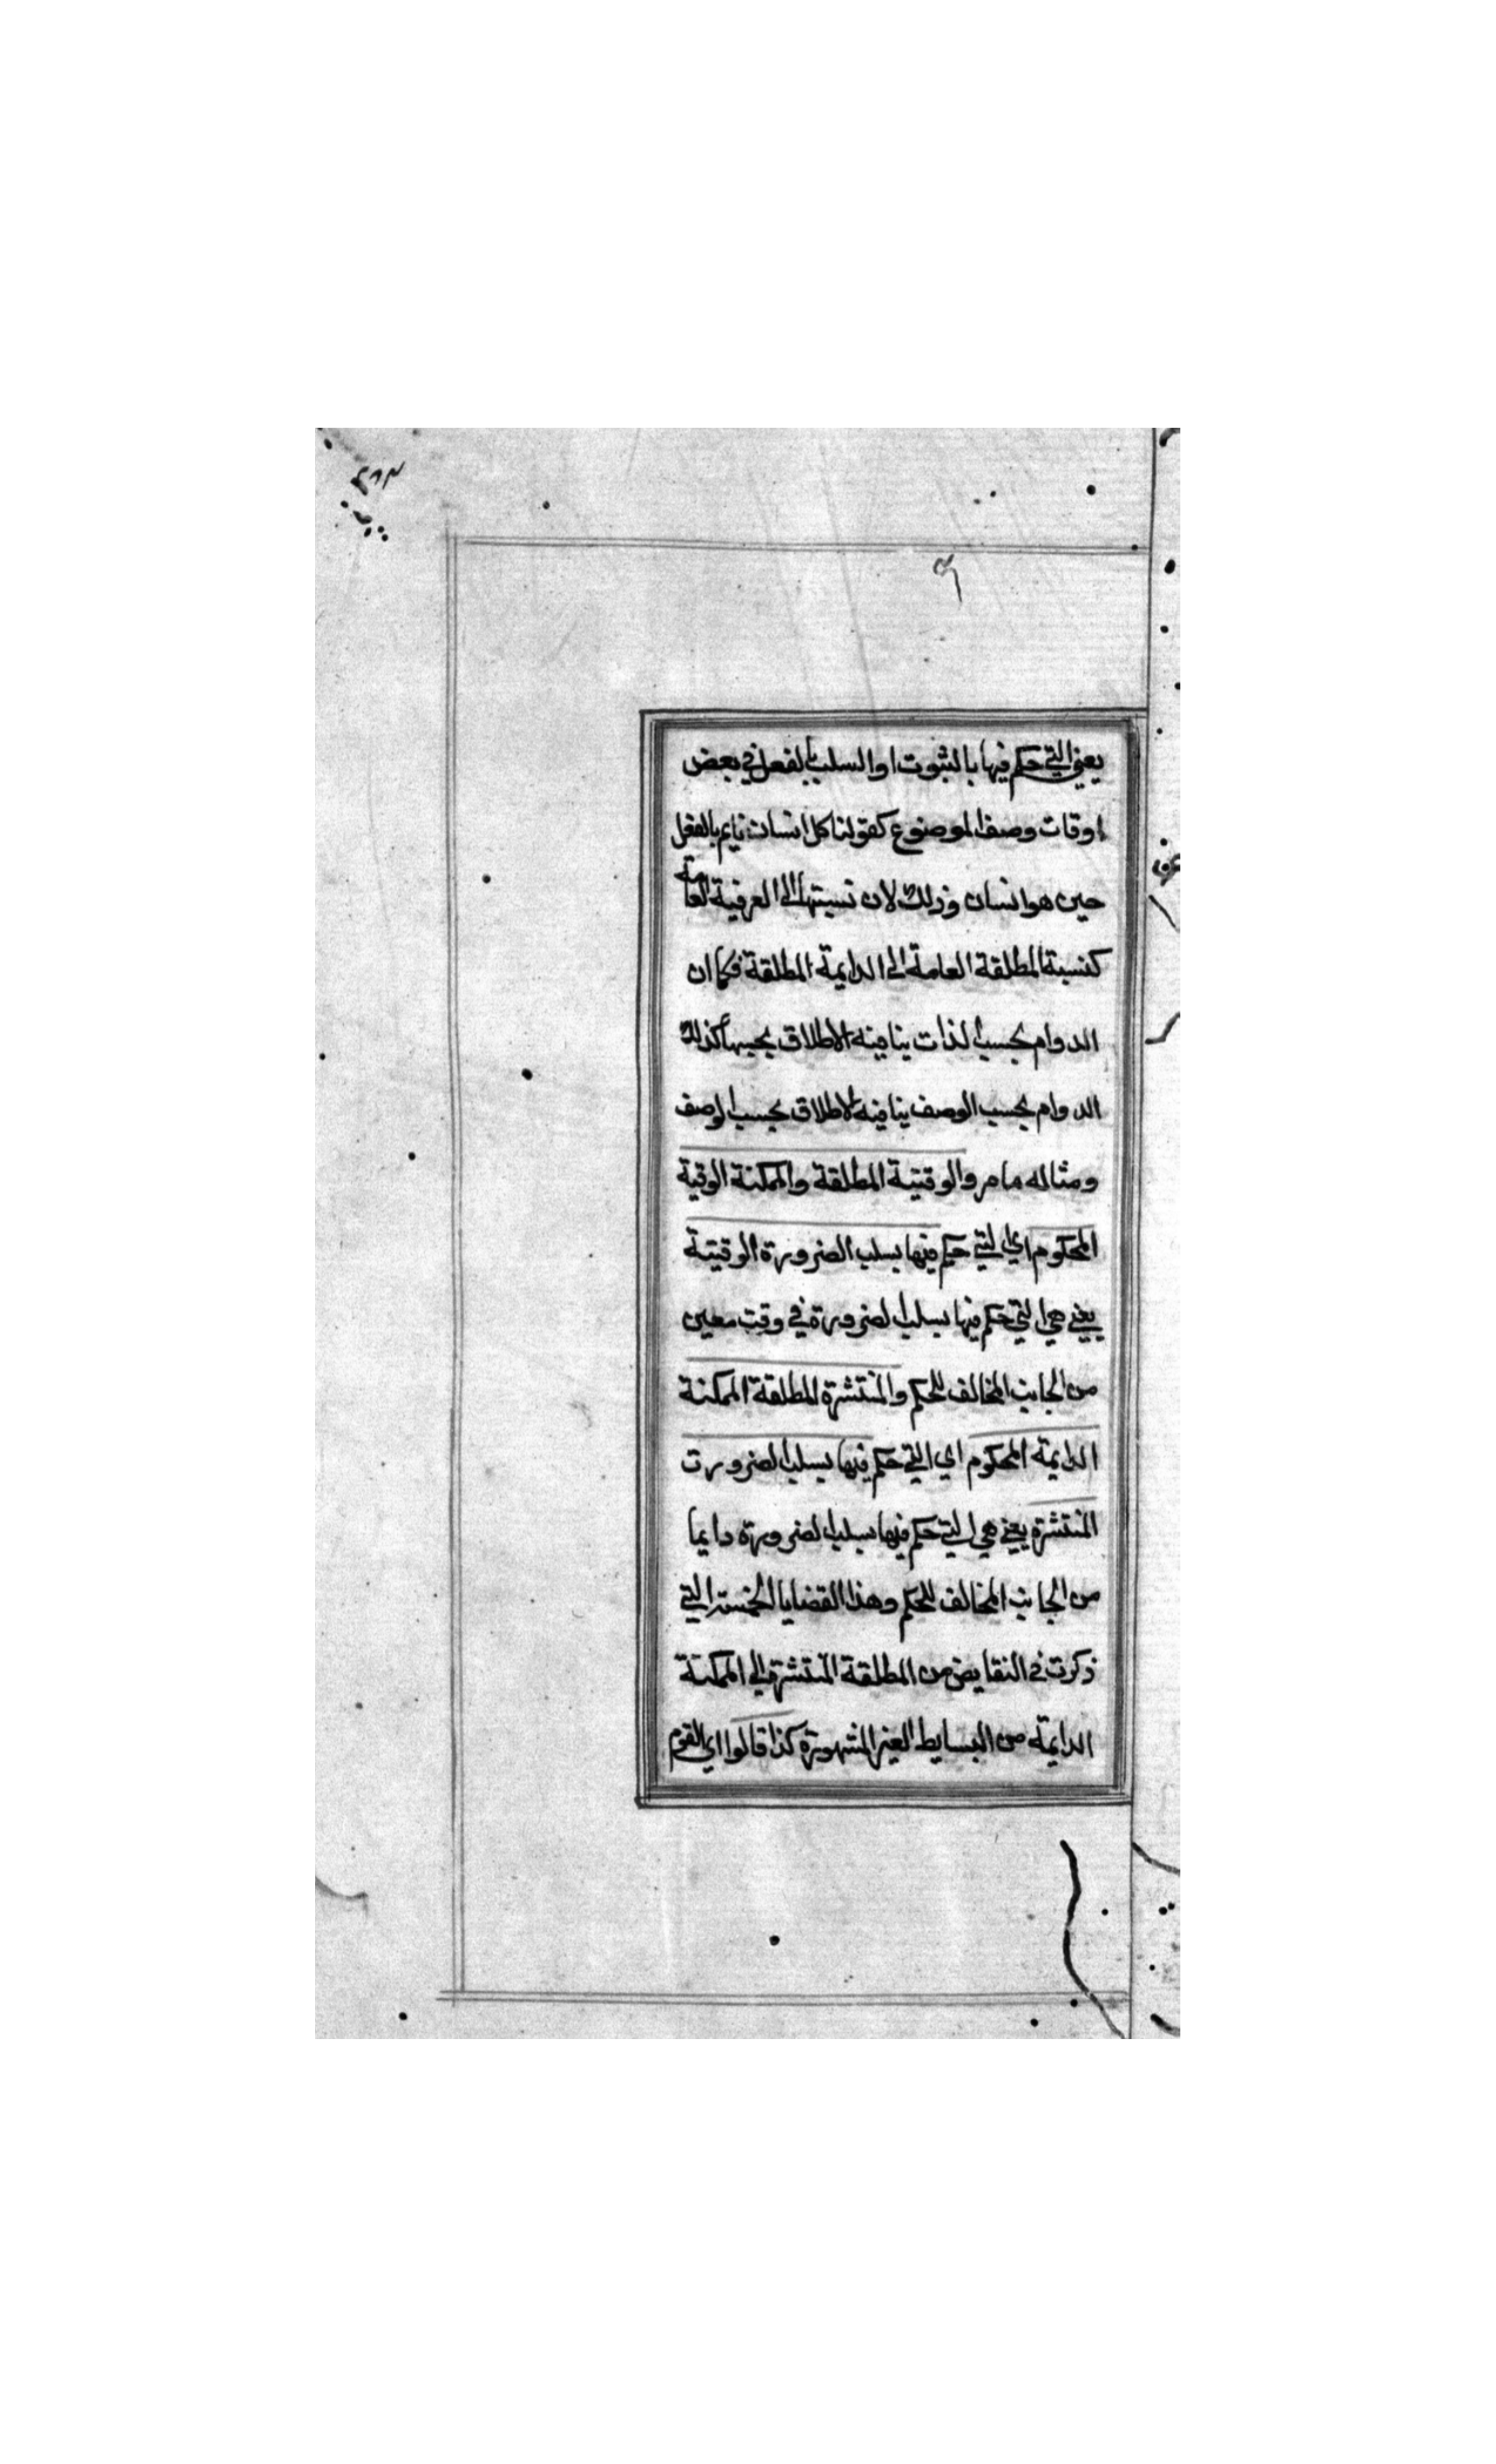 يعني التي حكم فيها بالثبوت او السلب بالفعل في بعض
اوقات وصف الموضوع كقولنا كل انسان نايم بالفعل
حين هو انسان وذلك لان نسبتها الى العرفية العامة
كنسبة المطلقة العامة الى الدايمة المطلقة فكما ان
الدوام بحسب الذات ينافيه الاطلاق بحسبها كذلك
الدوام بحسب الوصف ينافيه الاطلاق بحسب الوصف
ومثاله ما مر والوقتية المطلقة والممكنة الوقية
المحكوم اي التي حكم فيها بسلب الضرورة الوقتية
يعني هي التي حكم فيها بسلب الضرورة في وقت معين
من الجانب المخالف للحكم والمنتشرة المطلقة الممكنة
الدايمة المحكوم اي التي حكم فيها بسلب الضرورت
المنتشرة يعني هي التي حكم فيها بسلب الضرورة دايما
من الجانب المخالف للحكم وهذا القضايا الخمسة التي
ذكرت في النقايض من المطلقة المنتشرة الى الممكنة
الدايمة من البسايط الغير المشهورة كذا قالوا اي القوم